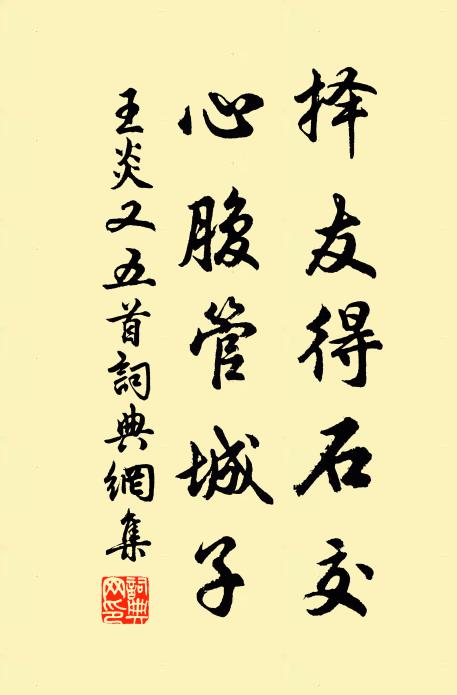 择友得石交
心腹管城子
王炎又五首詞典網集
詞典
网印